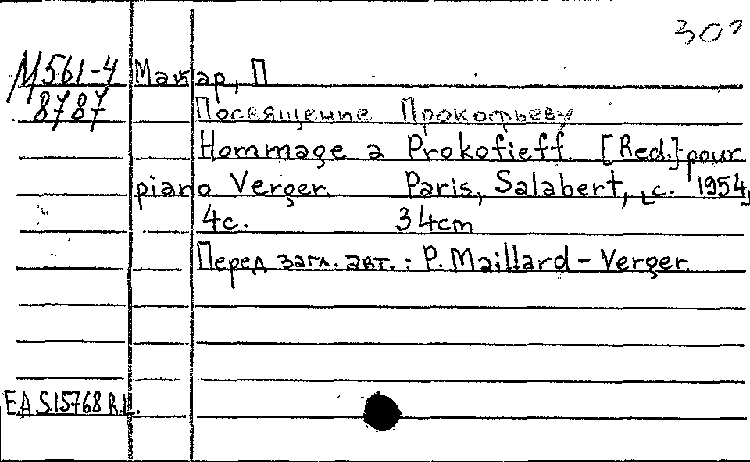 30?
М561-4 Маяар, П
8787 Посвящение Прокофьеву
Hommage a Prokofieff [Red.] pour
piano Verger. Paris, Salabert, c. 1954
4с. 34cm
Перед загл. авт.: P. Maillard-Verger
EA S.15768 R.L.